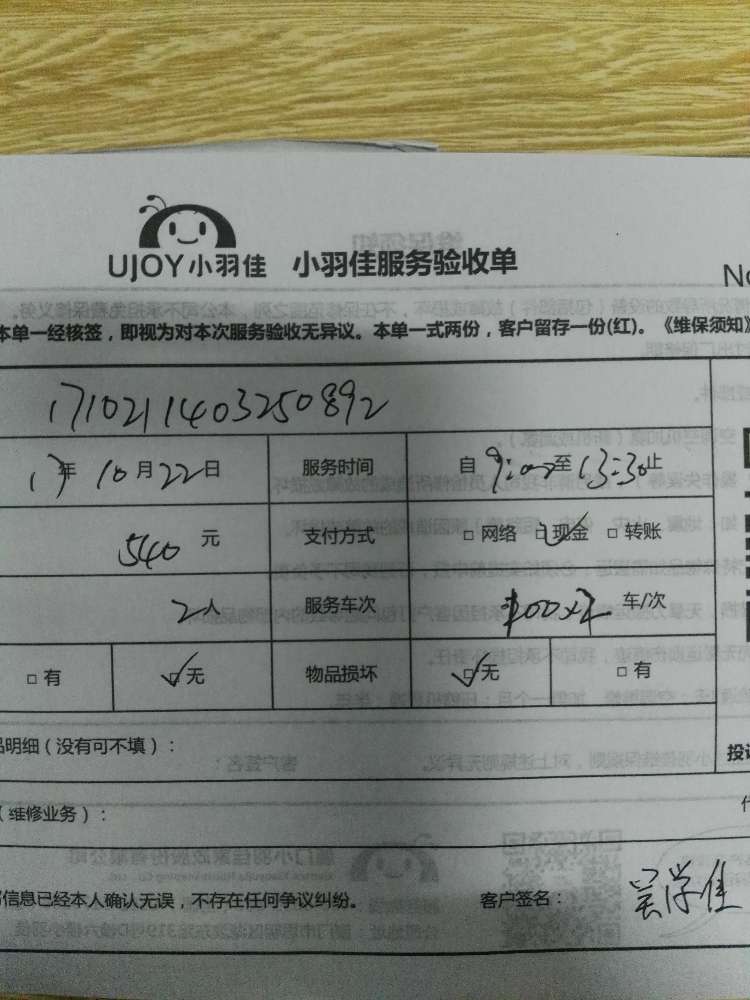 UJOY小羽佳 小羽佳服务验收单
No
本单一经核签，即视为对本次服务验收无异议。本单一式两份，客户留存一份(红)。《维保须知》
1710211403250892
17年 10月22日 服务时间 自 9:00至 13:30止
540 元 支付方式 □ 网络 ☑ 现金 □ 转账
2人 服务车次 200×2 车/次
□ 有 ☑ 无 物品损坏 ☑ 无 □ 有
品明细（没有可不填）：
投诉
（维修业务）：
信息已经本人确认无误，不存在任何争议纠纷。 客户签名： 吴学佳